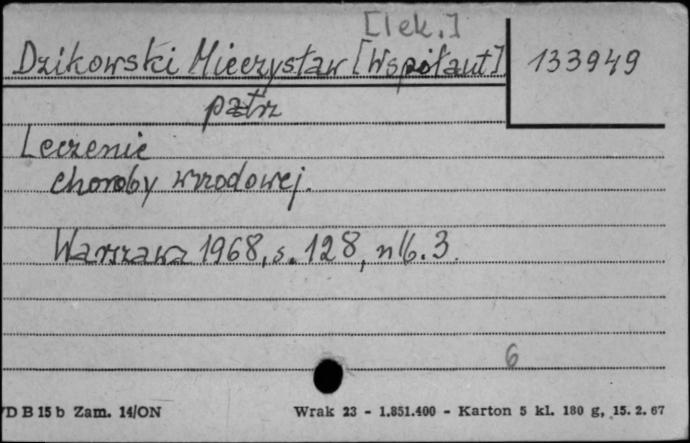 [lek.]
Dzikowski Mieczysław [Współaut] 133949
patrz
Leczenie
choroby wrzodowej.
Warszawa 1968, s. 128, nlb. 3.
6
D B 15 b Zam. 14/ON Wrak 23 - 1.851.400 - Karton 5 kl. 180 g, 15. 2. 67